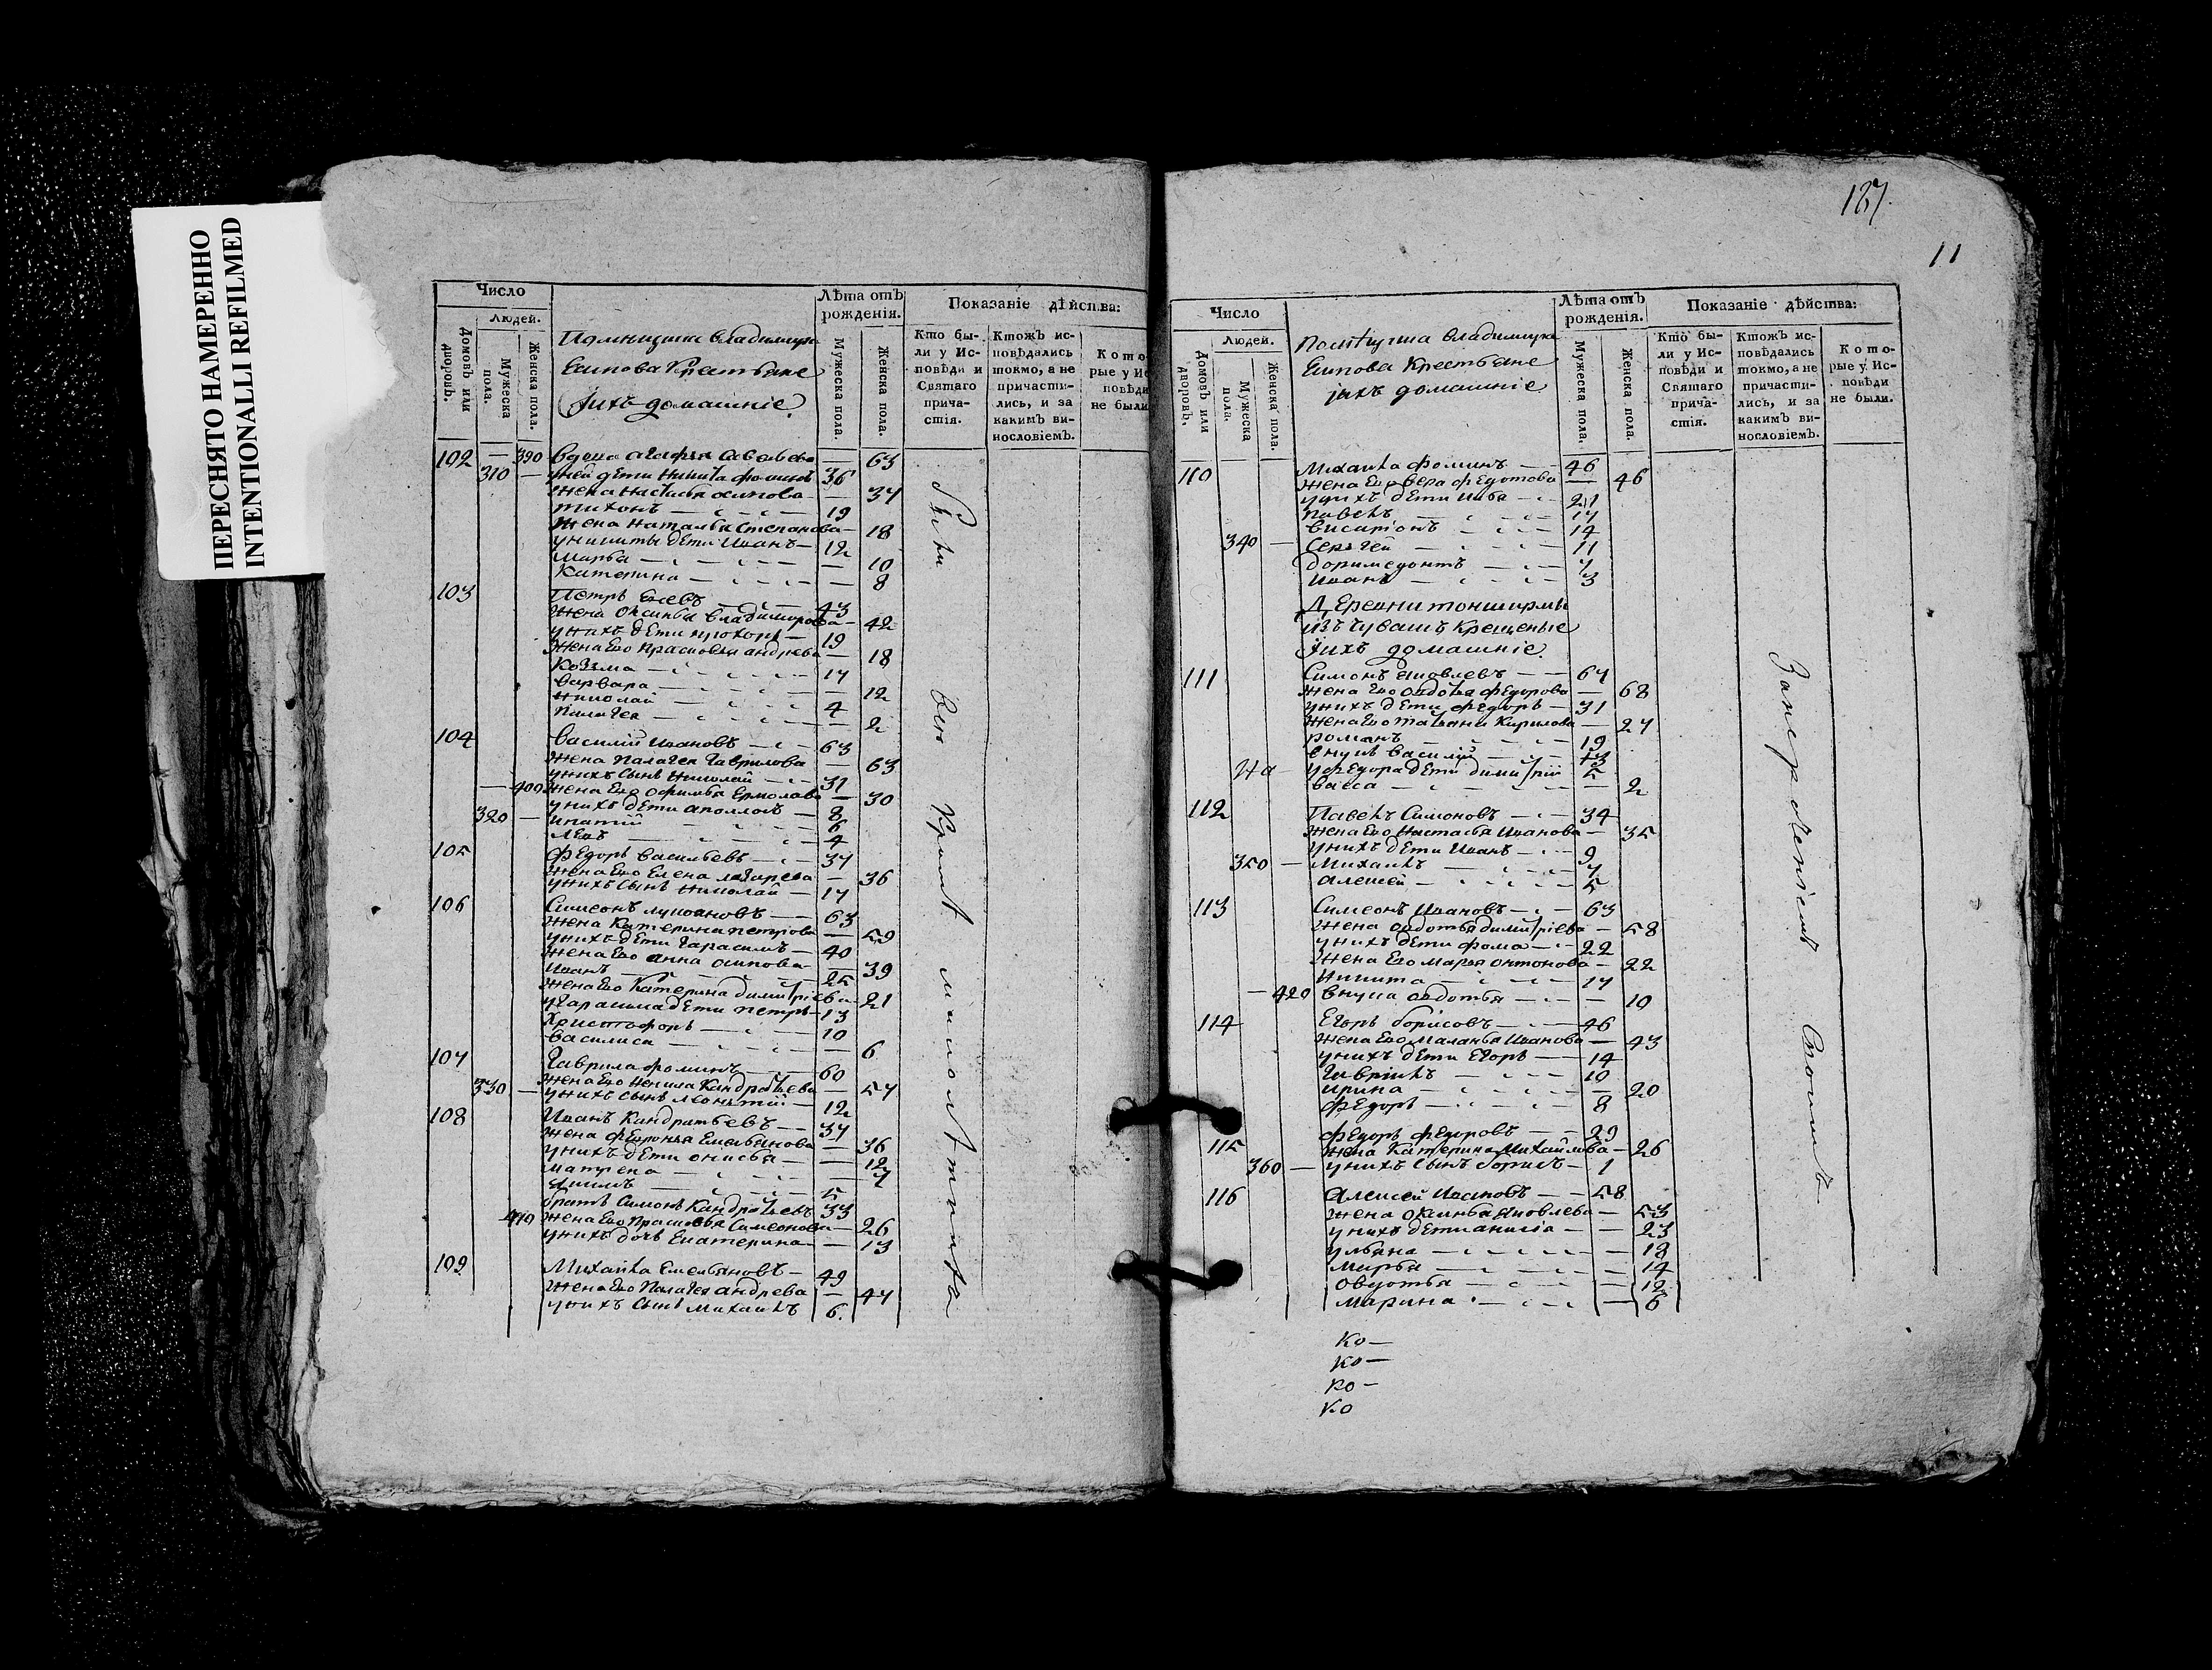 ПЕРЕСНЯТО НАМЕРЕННО
INTENTIONALLI REFILMED
Число
Людей.
Домовъ или дворовъ.
Мужеска пола.
Женска пола.
Помещика владимира
Есипова Крестьяне
Иихъ домашніе
Лѣта отъ рожденія.
Мужеска пола.
Женска пола.
Показаніе дѣйства:
Кто были у Исповѣди и Святаго причастія.
Ктожъ исповѣдались токмо, а не причастились, и за какимъ винословіемъ.
Кото-
рые у Ис
повѣди
не были
102 — 390 вдова агафья савельева — 63
310 — уней дети никита фоминъ 36
жена настасья осипова — 37
тихонъ 19
жена наталья степанова — 18
уникиты дети иванъ 12
марья — 10
катерина — 8
103 Петръ 43
жена оксинья владимирова — 42
унихъ дети прохоръ 19
жена ево прасковья андрева — 18
козма 17
варвара — 12
николай 4
палагея — 2
104 василий ивановъ 63
жена палагея гаврилова — 63
унихъ сынъ николай 31
— 400 жена ево офимья ермолаева — 30
320 — унихъ дети аполлонъ 8
ипатий 6
левъ 4
105 федоръ васильевъ 37
жена ево елена лазарева — 36
унихъ сынъ николай 17
106 симеонъ лукояновъ 63
жена катерина петрова — 59
унихъ дети гарасимъ 40
жена ево анна осипова — 39
иванъ 25
жена ево катерина димитріева — 21
угарасима дети петръ 13
христофоръ 10
василиса — 6
107 гаврила фоминъ 60
330 — жена ево кандратьева — 57
унихъ сынъ леонтий 12
108 иванъ кандратьевъ 37
жена емельянова — 36
унихъ дети онисья — 12
матрена — 7
якимъ 5
братъ симонъ кандратьевъ 33
410 жена ево прасковья симеонова — 26
унихъ дочь екатерина — 13
109 михайла емельяновъ 49
жена ево палагея андрева — 47
унихъ сынъ михаилъ 6.
127
11
Число
Людей.
Домовъ или дворовъ.
Мужеска пола.
Женска пола.
помещика владимира
Есипова Крестьяне
иихъ домашніе
Лѣта отъ рожденія.
Мужеска пола.
Женска пола.
Показаніе дѣйства:
Кто были у Исповѣди и Святаго причастія.
Ктожъ исповѣдались токмо, а не причастились, и за какимъ винословіемъ.
Которые у Исповѣди не были.
110 михайла фоминъ — 46
жена ево вера федотова — 46
унихъ дети 21
павелъ 17
висаріонъ 14
340 — сергей 11
доримедонтъ 7
иванъ 3
деревни тоншермы
изъ чувашъ крещеные
иихъ домашніе.
111 симонъ яковлевъ 67
жена ево овдотья федорова — 68
унихъ дети федоръ 31
жена ево татьяна кирилова — 27
романъ 19
внукъ василий 13
уфедора дети димитрій 5
васса — 2
112 павелъ симоновъ 34
жена ево настасья иванова — 35
унихъ дети иванъ 9
350 — михаилъ 7
алексей 5
113 симеонъ ивановъ 63
жена овдотья димитріева — 58
унихъ дети фома 22
жена ево марья онтонова — 22
никита 17
— 420 внука овдотья — 10
114 егоръ борисовъ 46
жена ево маланья иванова — 43
унихъ дети егоръ 14
гавріилъ 10
ирина — 20
федоръ 8
115 федоръ федоровъ 29
жена катерина михайлова — 26
360 — унихъ сынъ борисъ 1
116 алексей ивановъ 58
жена оксинья яковлева — 53
унихъ дети — 23
ульяна — 18
марья — 14
овдотья — 12
марина — 6
ко—
ко—
ко—
ко